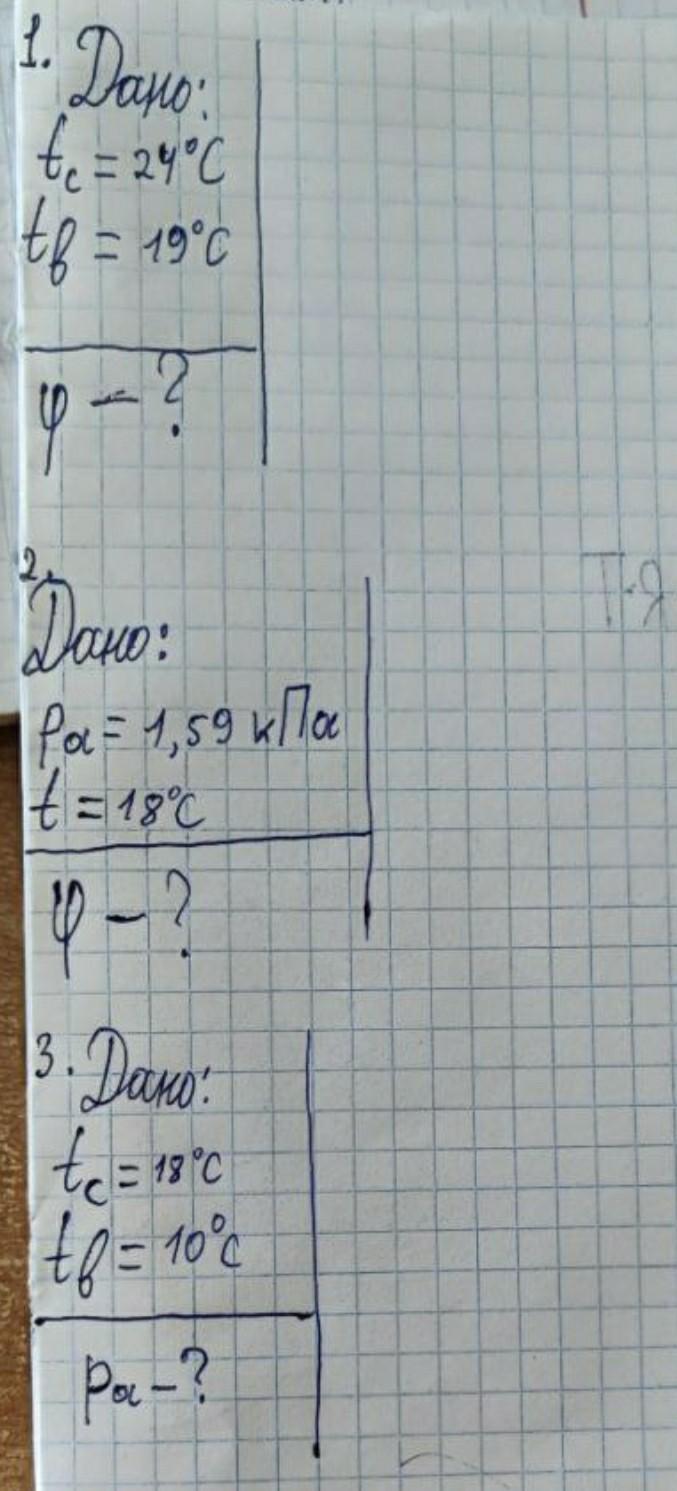 1. Дано:
tc = 24°C
tв = 19°C
φ – ?
2.
Дано:
pa = 1,59 кПа
t = 18°C
φ – ?
3. Дано:
tc = 18°C
tв = 10°C
pa – ?